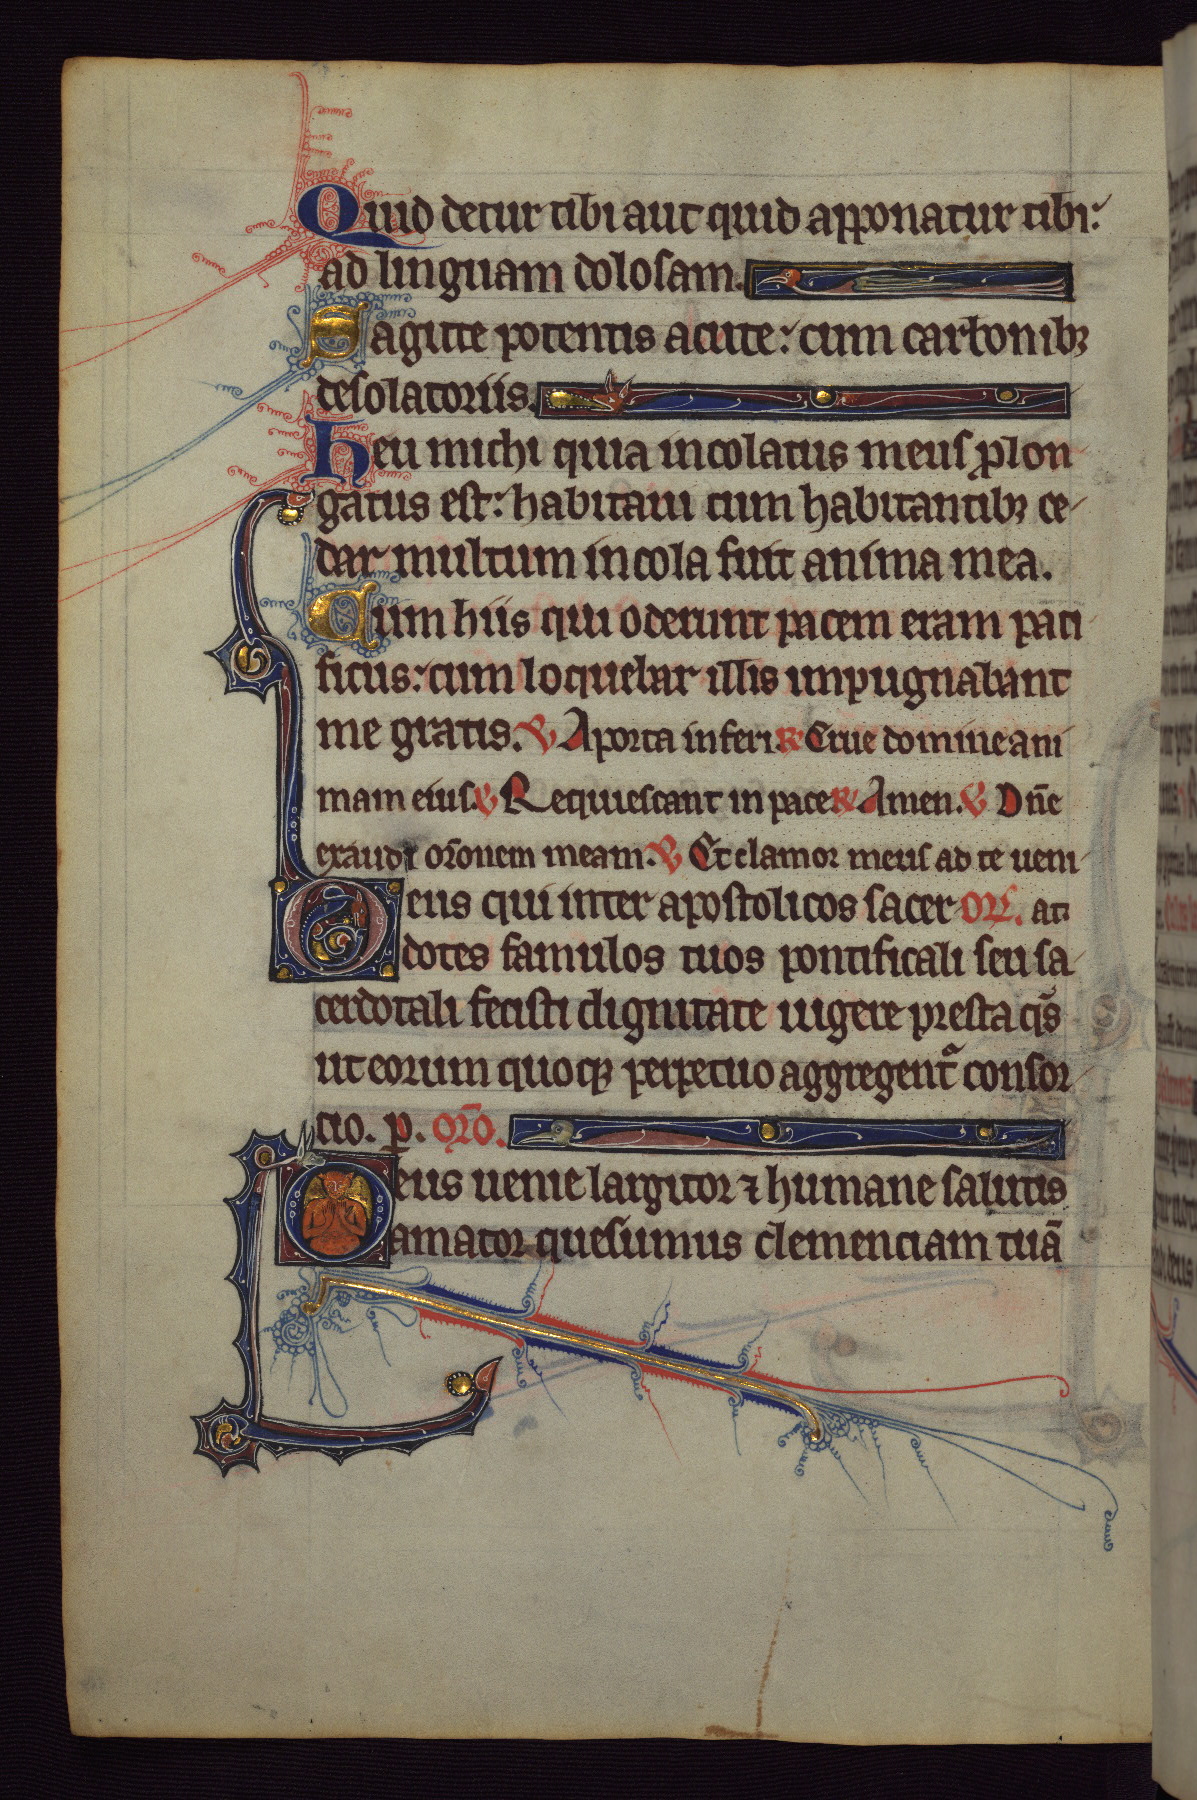 Quid detur tibi aut quid apponatur tibi:
ad linguam dolosam.
Sagitte potentis acute: cum carbonibꝫ
desolatoriis.
Heu michi quia incolatus meus ꝓlon
gatus est: habitaui cum habitantibꝫ ce
dar multum incola fuit anima mea.
Cum hiis qui oderunt pacem eram paci
ficus: cum loquebar illis impugnabant
me gratis. ℣ A porta inferi ℟ Erue domine ani
mam eius. ℣ Requiescant in pace ℟ Amen. ℣ Dn̄e
exaudi or̄onem meam. ℣ Et clamor meus ad te ueni
Deus qui inter apostolicos sacer or̄. at
dotes famulos tuos pontificali seu sa
cerdotali fecisti dignitate uigere presta q̄s
ut eorum quoqꝫ perpetuo aggregent᷑ consor
cio. p. or̄o.
Deus uenie largitor ⁊ humane salutis
amator quesumus clemenciam tuā